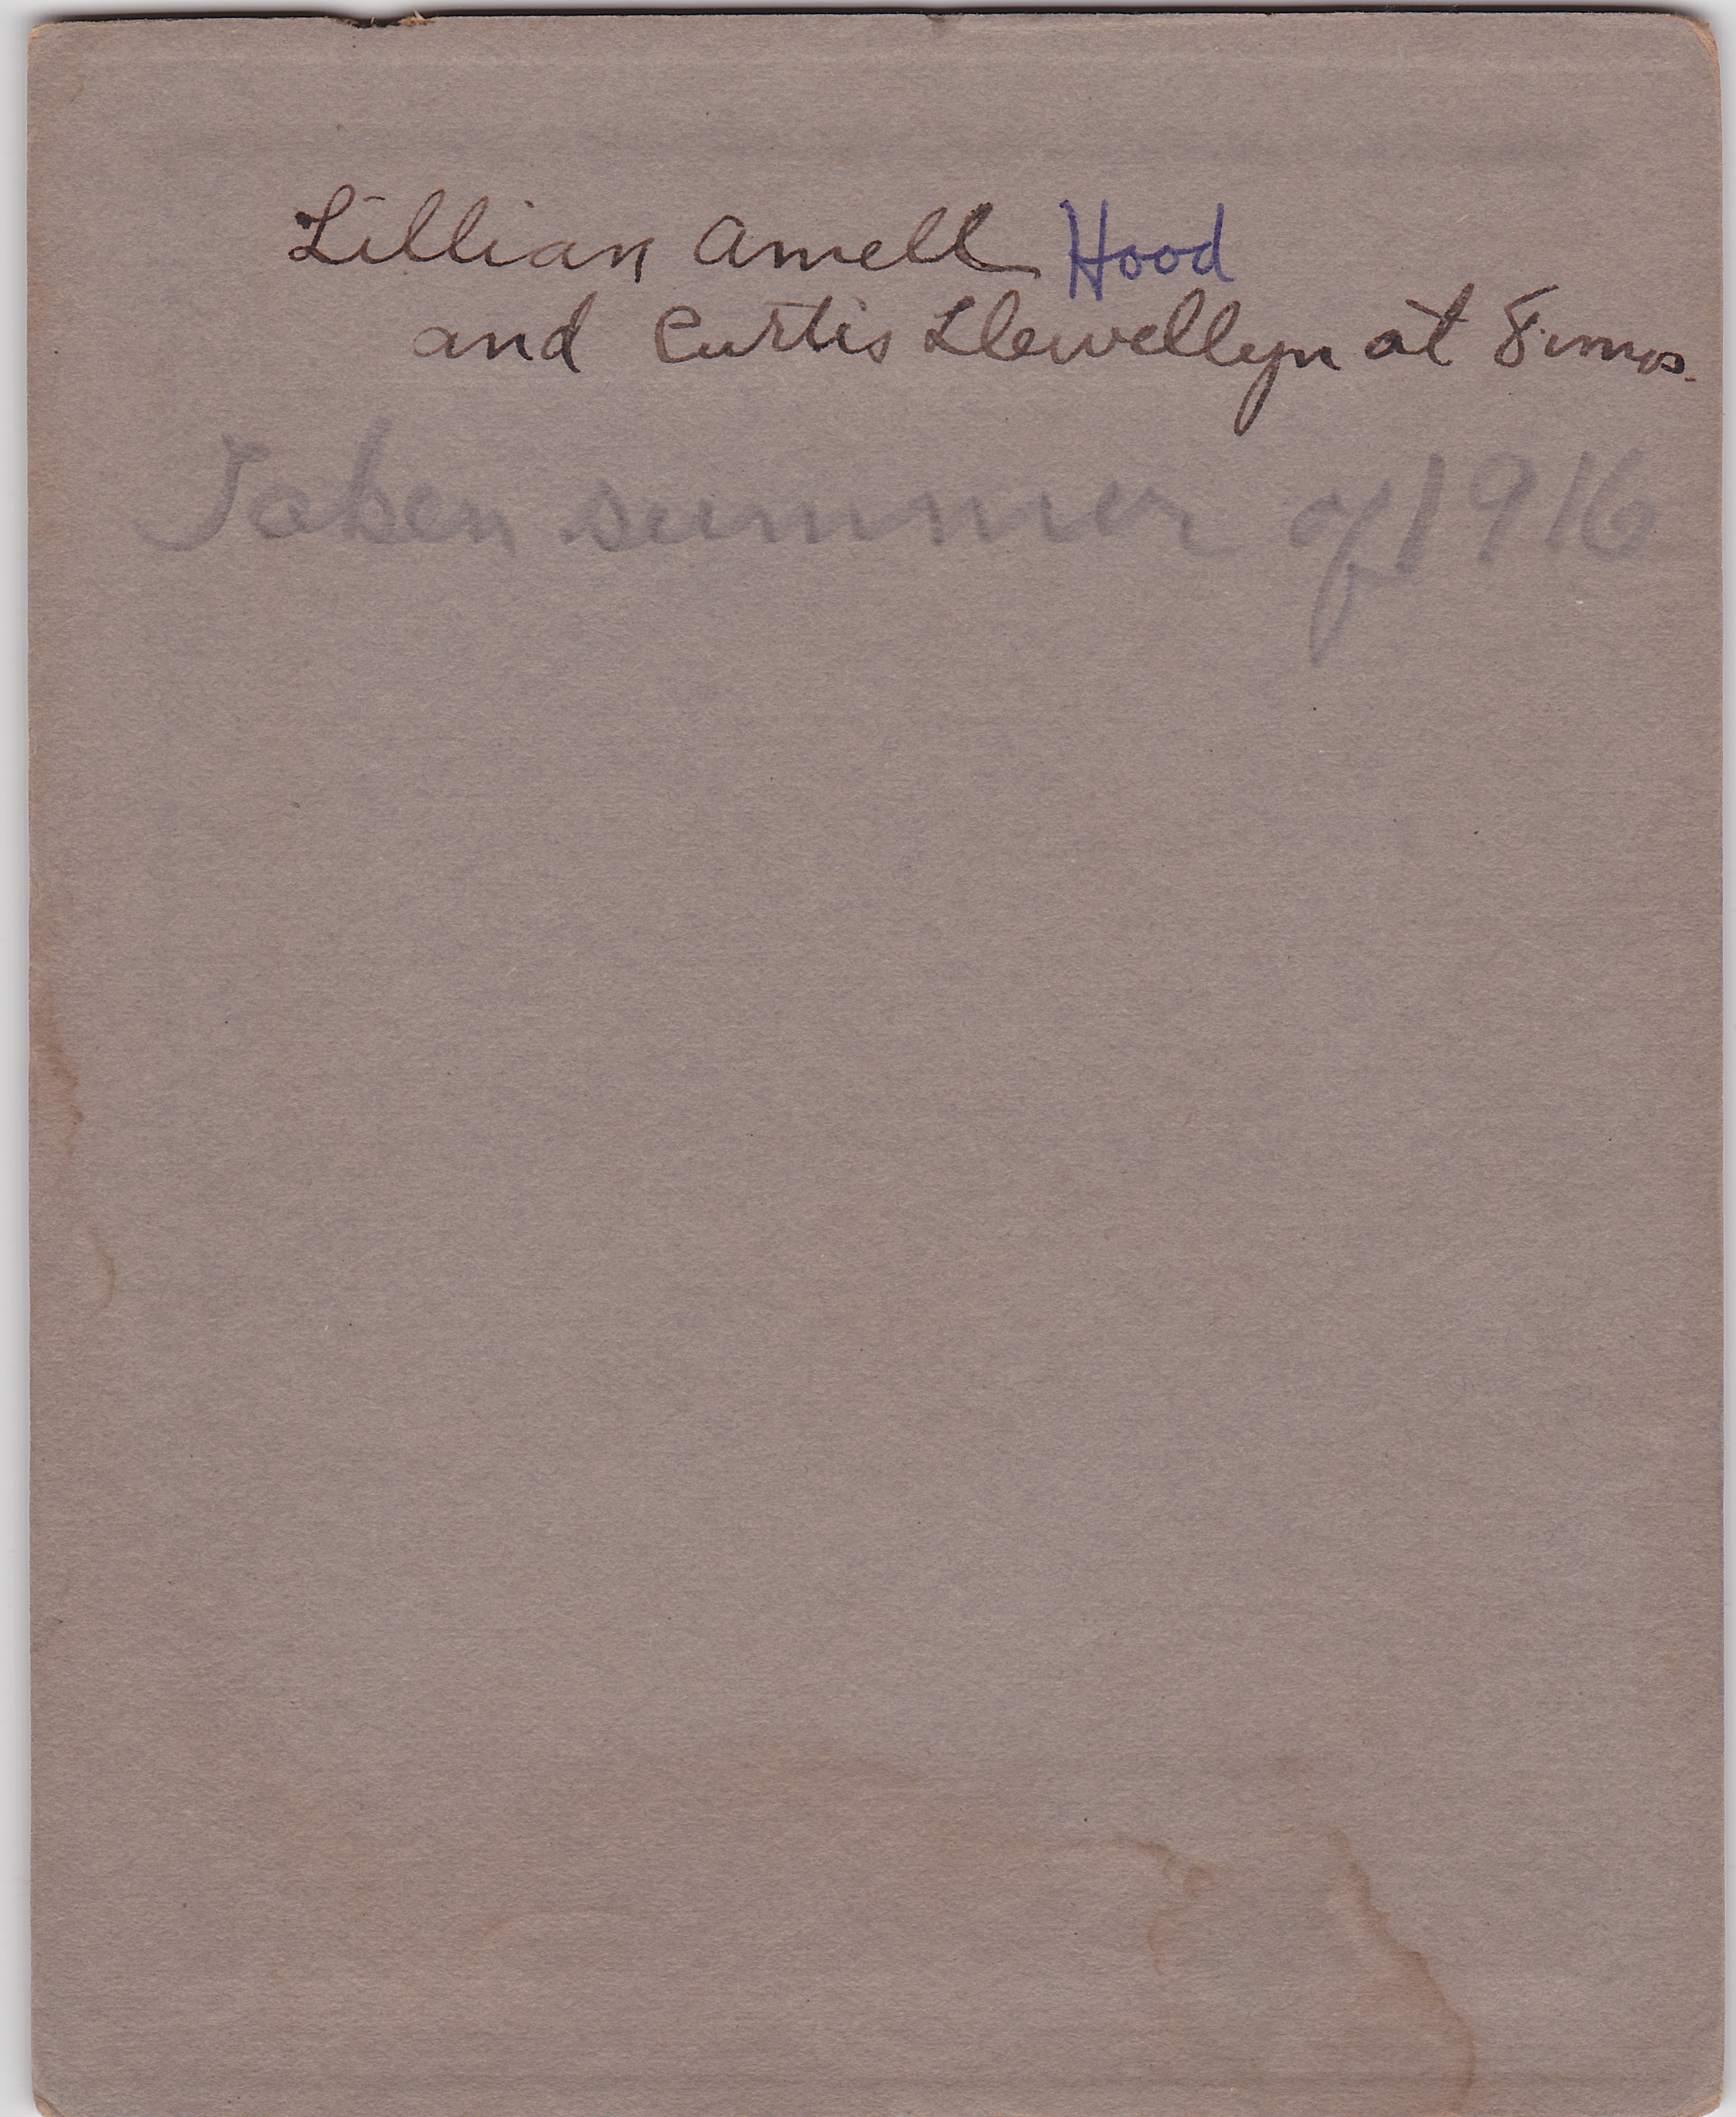 Lillian Amell Hood
and Curtis Llewellyn at 8 mos.
Taken summer of 1916